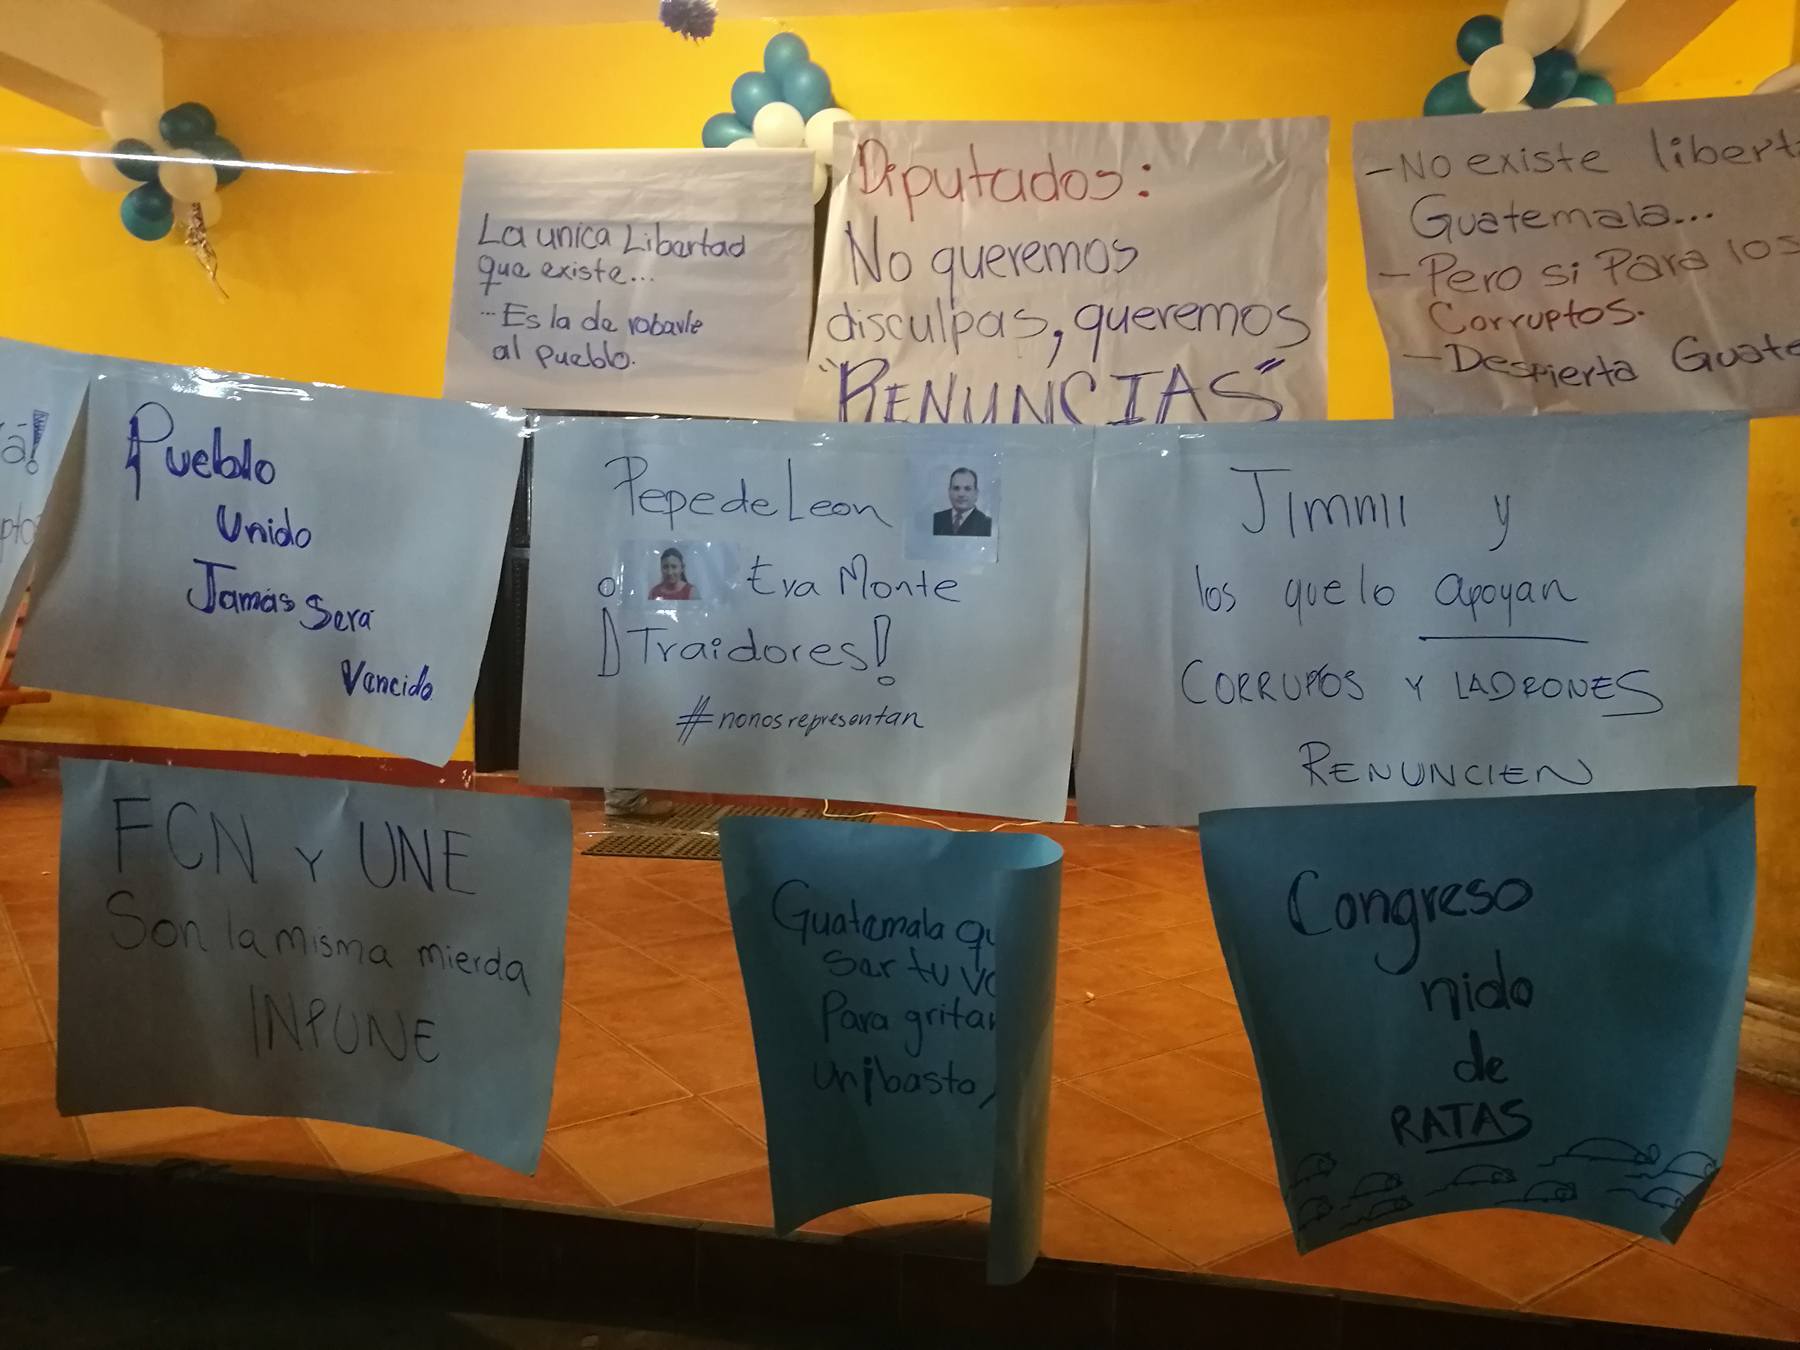 La unica Libertad
que existe...
... Es la de robarle
al pueblo.
Diputados:
No queremos
disculpas, queremos
"RENUNCIAS"
- No existe libert
Guatemala...
- Pero si Para los
Corruptos.
- Despierta Guate
á!
Pueblo
Unido
Jamás Será
Vencido
Pepe de Leon
o Eva Monte
¡Traidores!
#nonosrepresentan
JIMMII y
los que lo apoyan
CORRUPTOS Y LADRONES
RENUNCIEN
FCN Y UNE
Son la misma mierda
INPUNE
Guatemala qu
ser tu vo
Para gritar
un ¡basta,
Congreso
nido
de
RATAS